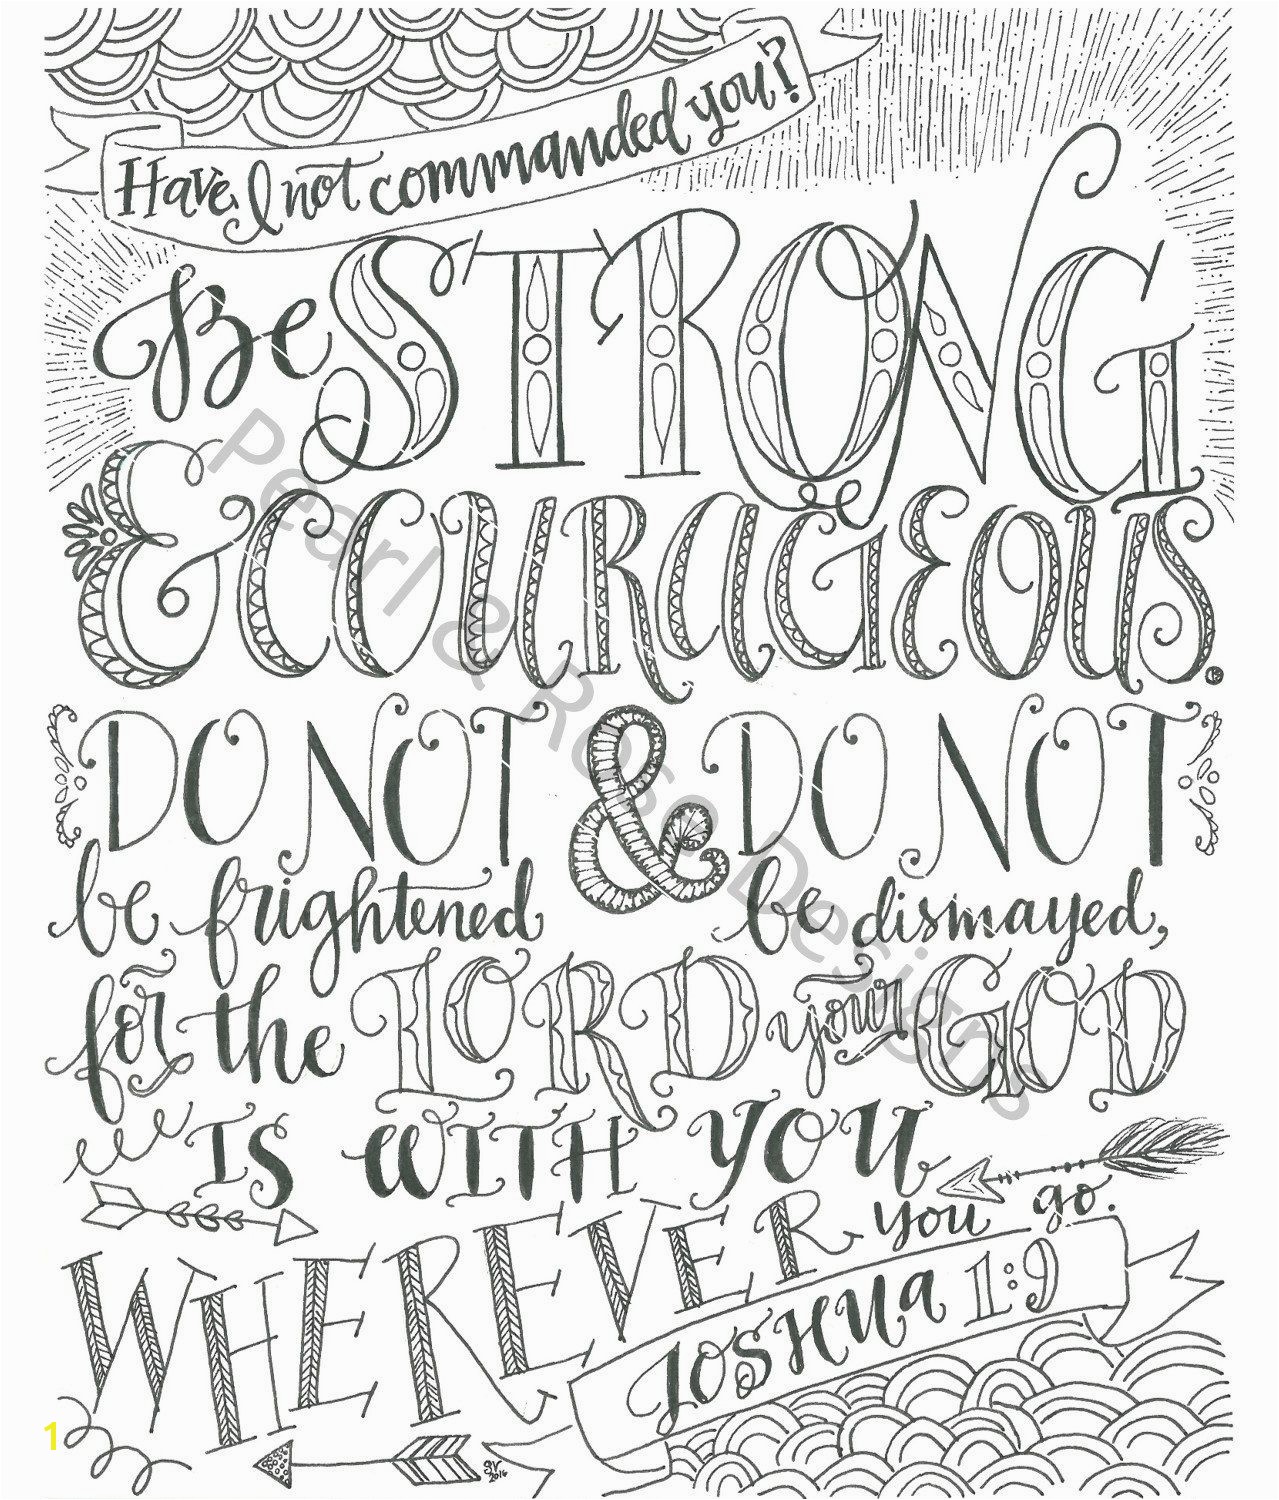 Have I not commanded you?
Be STRONG
& COURAGEOUS.
DO NOT & DO NOT
be frightened be dismayed,
for the LORD your GOD
IS WITH YOU
WHEREVER you go.
JOSHUA 1:9
Pearl & Rose Designs
1
SV
2016